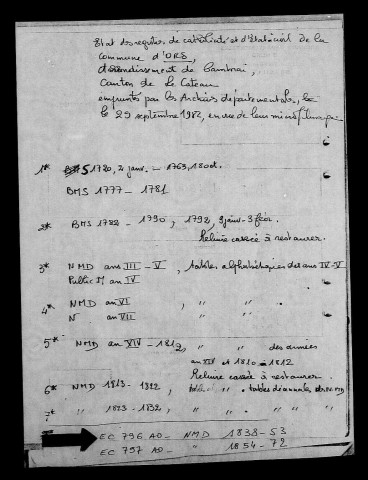 Etat des registres de catholicité et d'Etat-civil de la
commune d'ORS,
Arrondissement de Cambrai,
Canton de Le Cateau
empruntés par les Archives départementales, le
le 29 septembre 1982, en vue de leur microfilmage
1* BMS 1720, 2 janv. - 1763, 18 oct.
BMS 1777 - 1781
2* BMS 1782 - 1790, 1792, 9 janv - 3 févr.
Reliure cassée à restaurer.
3* NMD ans III - V, tables alphabétiques des ans IV-V
Public M an IV
4* NMD an VI, " "
N an VII " "
5* NMD an XIV - 1812, " " des années
an XIV et 1810 - 1812
Reliure cassée à restaurer
6* NMD 1813 - 1822, tables décennales
7* " 1823 - 1832, " " "
EC 796 AO - NMD 1838 - 53
EC 797 AO - " 1854 - 72